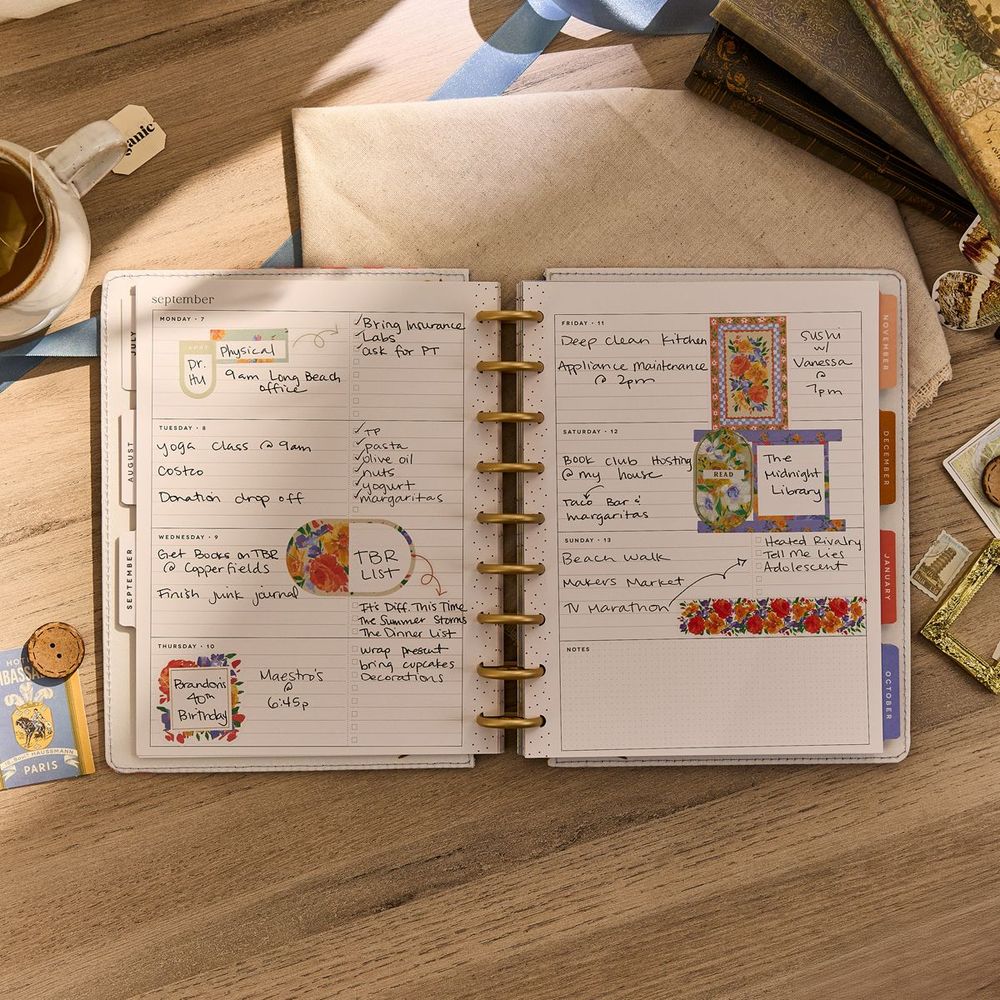 ganic
september
JULY
AUGUST
SEPTEMBER
MONDAY • 7
APPT
Dr.
HU
Physical
9am Long Beach
office
Bring Insurance
Labs
ask for PT
TUESDAY • 8
yoga class @ 9am
Costco
Donation drop off
TP
pasta
olive oil
nuts
yogurt
margaritas
WEDNESDAY • 9
Get Books on TBR
@ Copperfields
Finish junk journal
TBR
LIST
It's Diff. This Time
The Summer Storms
The Dinner List
THURSDAY • 10
Brandon's
40th
Birthday
Maestro's
@
6:45p
wrap present
bring cupcakes
Decorations
FRIDAY • 11
Deep clean Kitchen
Appliance Maintenance
@ 2pm
Sushi
w/
Vanessa
@
7pm
SATURDAY • 12
Book club Hosting
@ my house
Taco Bar &
margaritas
READ
The
Midnight
Library
SUNDAY • 13
Beach walk
Makers Market
TV Marathon
Heated Rivalry
Tell Me Lies
Adolescent
NOTES
NOVEMBER
DECEMBER
JANUARY
OCTOBER
HAUSSMANN
PARIS